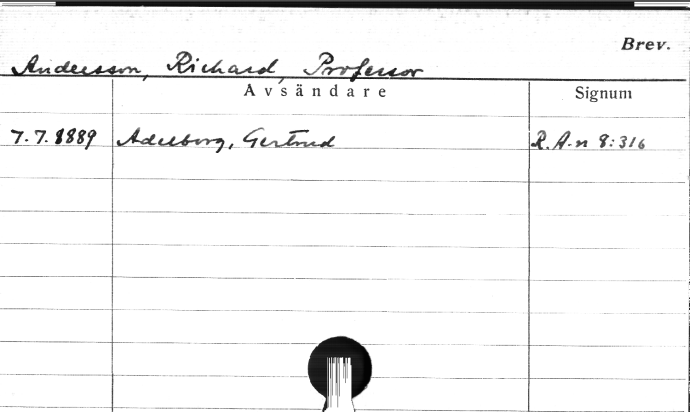 Brev.
Andersson, Richard, Professor
Avsändare Signum
7.7.1889 Adelborg, Gertrud R.A.n 8:316